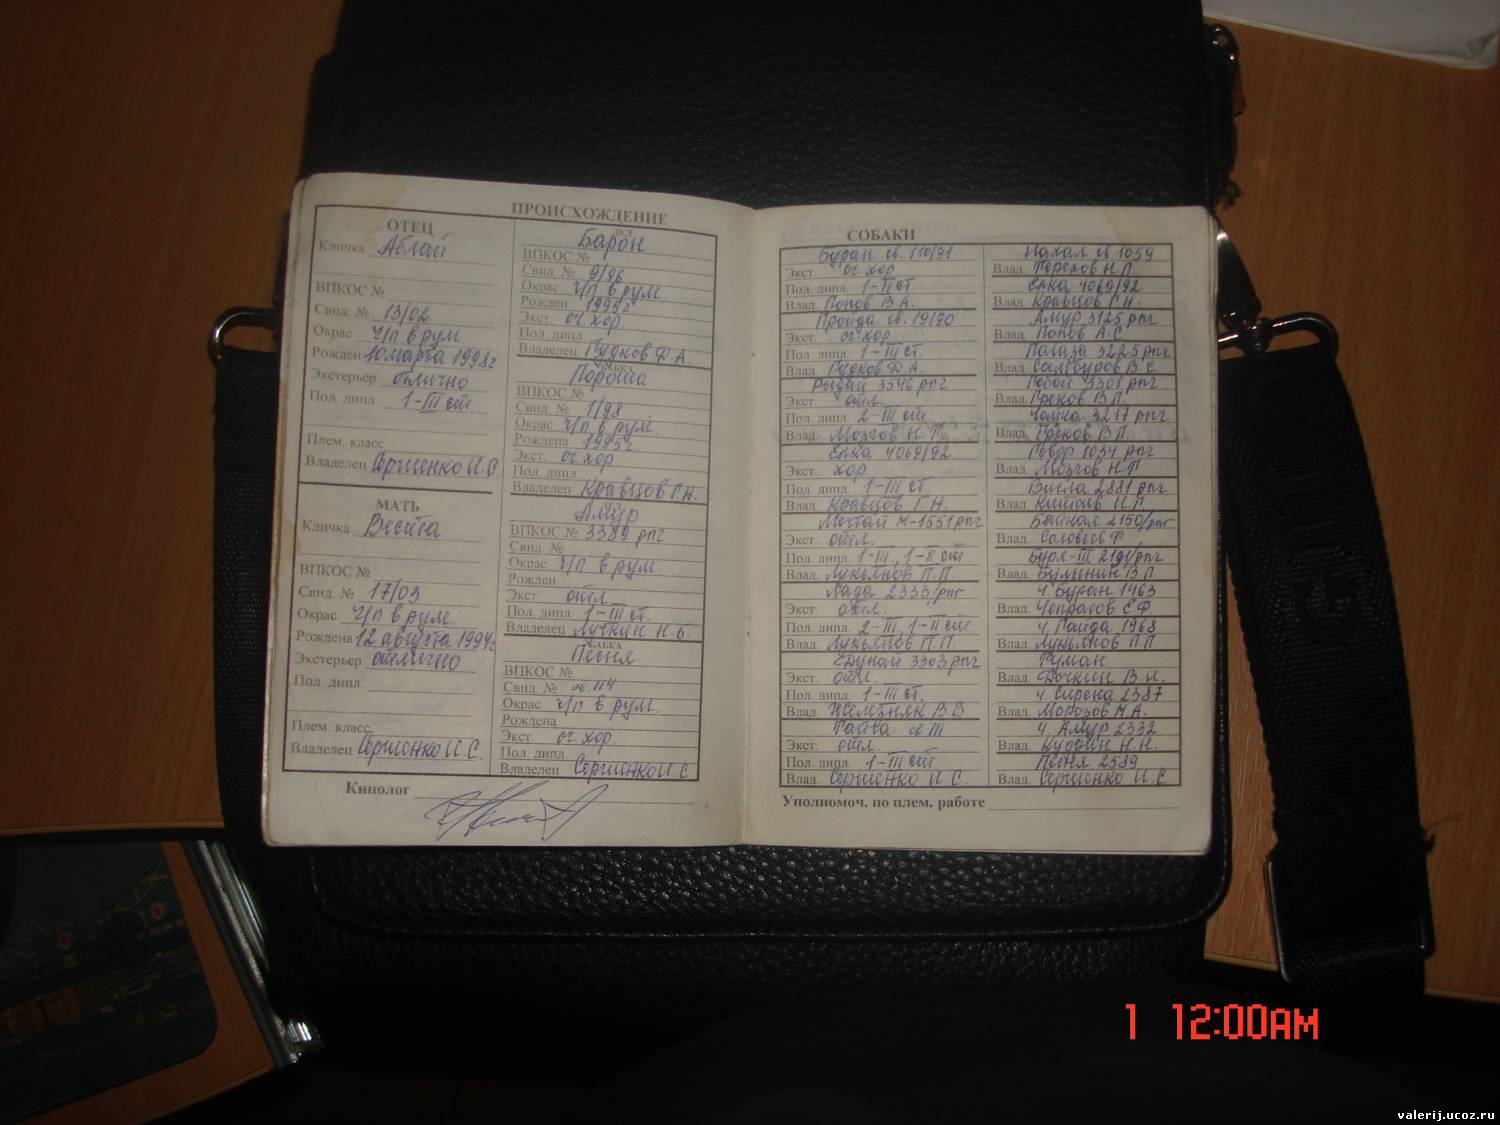 ПРОИСХОЖДЕНИЕ
ОТЕЦ
Кличка Аблай
ВПКОС №
Свид. № 13/02
Окрас ч/п в рум
Рожден 10 марта 1998г
Экстерьер отлично
Пол. дипл. 1-III ст
Плем. класс
Владелец Сергиенко И.С.
МАТЬ
Кличка Веста
ВПКОС №
Свид. № 17/03
Окрас ч/п в рум.
Рождена 12 августа 1994г
Экстерьер отлично
Пол. дипл.
Плем. класс
Владелец Сергиенко И.С.
Кинолог
ДЕД
Барон
ВПКОС №
Свид. № 9/96
Окрас ч/п в рум.
Рожден 1993г.
Экст. оч. хор
Пол. дипл.
Владелец Рудков Ф.А.
БАБКА
Пороша
ВПКОС №
Свид. № 1/98
Окрас ч/п в рум.
Рождена 1995г
Экст. оч хор
Пол. дипл
Владелец Кравцов Г.Н.
Амур
ВПКОС № 3389 рпг
Свид. №
Окрас ч/п в рум
Рожден
Экст отл
Пол. дипл. 1-III ст.
Владелец Лучкин Н.Б.
БАБКА
Песня
ВПКОС №
Свид. № св. 114
Окрас ч/п в рум.
Рождена
Экст. оч. хор.
Пол. дипл.
Владелец Сергиенко И.С
СОБАКИ
Буран св. 110/91
Экст. оч хор
Пол. дипл. 1-III ст
Влад. Попов В.А.
Пройда св. 19/90
Экст. оч хор
Пол. дипл. 1-III ст.
Влад. Рудков Ф.А.
Рыдай 3346 рпг
Экст. отл.
Пол. дипл. 2-III ст
Влад. Мозгов Н.Т.
Елка 4069/92
Экст. хор
Пол. дипл. 1-III ст
Влад. Кравцов Г.Н.
М-1551 рпг
Экст. отл.
Пол. дипл. 1-III, 1-II ст.
Влад. Лукьянов П.П
Лада 2333/рпг
Экст. отл.
Пол. дипл. 2-III, 1-II ст
Влад. Лукьянов П.П
3303 рпг
Экст. отл.
Пол. дипл. 1-III ст.
Влад. Железняк В.В
Гайва св III
Экст. отл.
Пол. дипл. 1-III ст
Влад. Сергиенко И.С.
Нахал св 1059
Влад. Терехов Н.П
Елка 4069/92
Влад. Кравцов Г.Н.
Амур 3125 рпг
Влад. Попов А.С.
3225 рпг
Влад. Самбуров В.С.
3301 рпг
Влад. Греков В.П.
Чайка 3217 рпг
Влад. В.П.
1034 рпг
Влад. Мозгов Н.Т
Висла 2881 рпг
Влад. П.Г.
Байкал 2150/рпг
Влад. Соловьев Ф.
Буря-III 2191/рпг
Влад. В.П.
ч. Буран 1463
Влад. Чепралов С.Ф.
ч. Гайда 1968
Влад. Лукьянов П.П
Туман
Влад. Дочкин В.И.
ч. Сирена 2387
Влад. Морозов М.А.
ч. Амур 2332
Влад. Н.Н.
Песня 2589
Влад. Сергиенко И.С
Уполномоч. по плем. работе
1 12:00AM
valerij.ucoz.ru